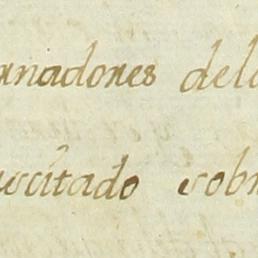 anadores dela
uscitado sobr